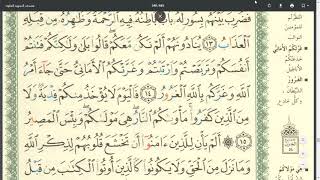 فَضُرِبَ بَيْنَهُم بِسُورٍ لَّهُۥ بَابٌۢ بَاطِنُهُۥ فِيهِ ٱلرَّحْمَةُ وَظَٰهِرُهُۥ مِن قِبَلِهِ
ٱلْعَذَابُ ١٣ يُنَادُونَهُمْ أَلَمْ نَكُن مَّعَكُمْ ۖ قَالُوا۟ بَلَىٰ وَلَٰكِنَّكُمْ فَتَنتُمْ
أَنفُسَكُمْ وَتَرَبَّصْتُمْ وَٱرْتَبْتُمْ وَغَرَّتْكُمُ ٱلْأَمَانِىُّ حَتَّىٰ جَآءَ أَمْرُ
ٱللَّهِ وَغَرَّكُم بِٱللَّهِ ٱلْغَرُورُ ١٤ فَٱلْيَوْمَ لَا يُؤْخَذُ مِنكُمْ فِدْيَةٌ وَلَا
مِنَ ٱلَّذِينَ كَفَرُوا۟ ۚ مَأْوَىٰكُمُ ٱلنَّارُ ۖ هِىَ مَوْلَىٰكُمْ ۖ وَبِئْسَ ٱلْمَصِيرُ
١٥ أَلَمْ يَأْنِ لِلَّذِينَ ءَامَنُوٓا۟ أَن تَخْشَعَ قُلُوبُهُمْ لِذِكْرِ ٱللَّهِ
وَمَا نَزَلَ مِنَ ٱلْحَقِّ وَلَا يَكُونُوا۟ كَٱلَّذِينَ أُوتُوا۟ ٱلْكِتَٰبَ مِن قَبْلُ